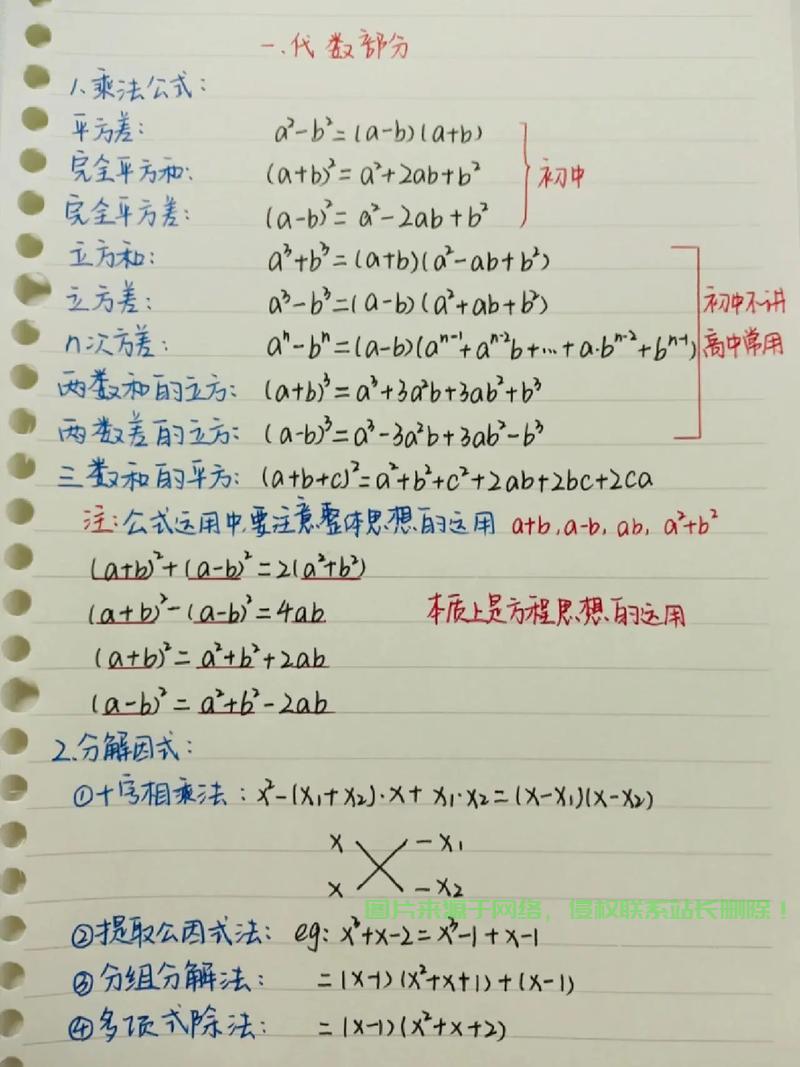 一.代数部分
1.乘法公式:
平方差: a²-b²=(a-b)(a+b)
完全平方和: (a+b)²=a²+2ab+b² 初中
完全平方差: (a-b)²=a²-2ab+b²
立方和: a³+b³=(a+b)(a²-ab+b²)
立方差: a³-b³=(a-b)(a²+ab+b²) 初中不讲
n次方差: aⁿ-bⁿ=(a-b)(aⁿ⁻¹+aⁿ⁻²b+…+a·bⁿ⁻²+bⁿ⁻¹) 高中常用
两数和的立方: (a+b)³=a³+3a²b+3ab²+b³
两数差的立方: (a-b)³=a³-3a²b+3ab²-b³
三数和的平方: (a+b+c)²=a²+b²+c²+2ab+2bc+2ca
注:公式运用中,要注意整体思想的运用 a+b,a-b, ab, a²+b²
(a+b)²+(a-b)²=2(a²+b²)
(a+b)²-(a-b)²=4ab 本质上是方程思想的运用
(a+b)²=a²+b²+2ab
(a-b)²=a²+b²-2ab
2.分解因式:
①十字相乘法:x²-(x₁+x₂)·x+x₁·x₂=(x-x₁)(x-x₂)
x -x₁
x -x₂
图片来源于网络，侵权联系站长删除！
②提取公因式法: eg: x³+x-2=x³-1+x-1
③分组分解法: =(x-1)(x²+x+1)+(x-1)
④多项式除法: =(x-1)(x²+x+2)